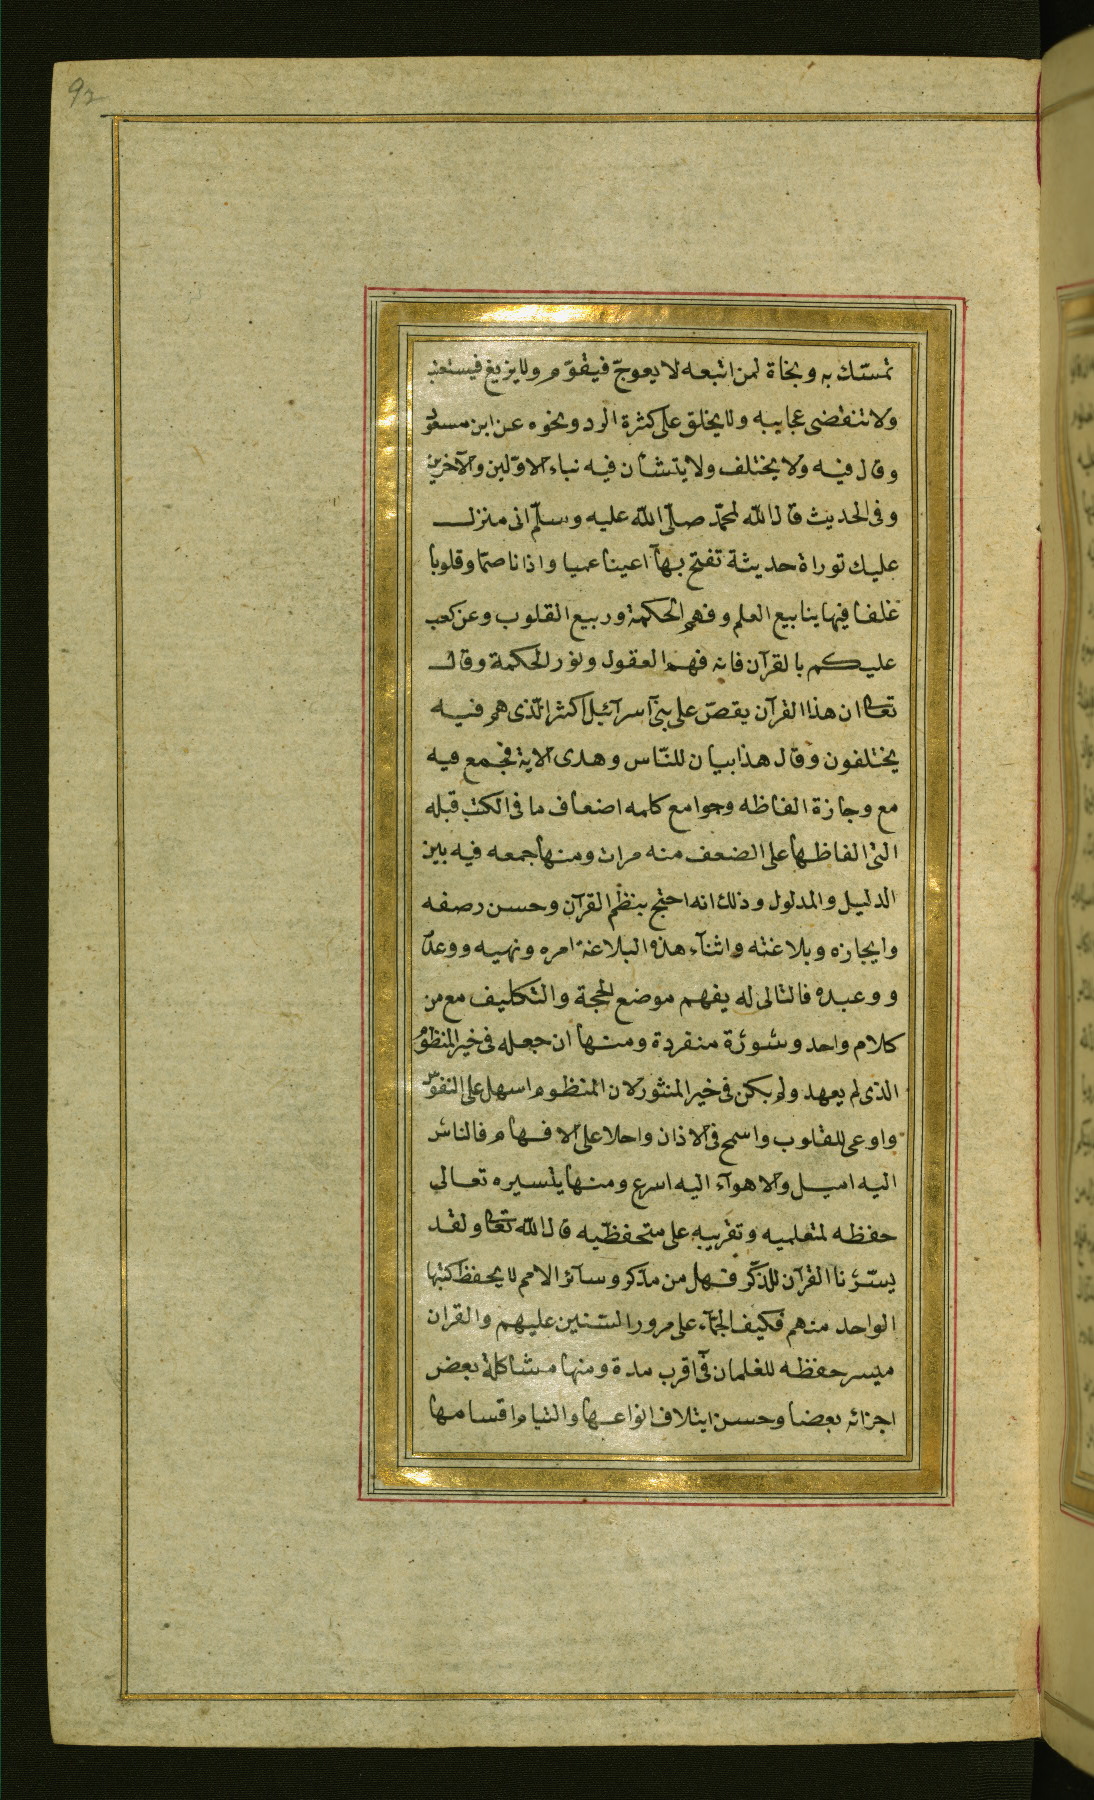 92
تمسّك به ونجاة لمن اتبعه لا يعوجّ فيقوّم ولا يزيغ فيستعتب
ولا تنقضى عجايبه ولا يخلق على كثرة الرد ونحوه عن ابن مسعود
وقال فيه ولا يختلف ولا يتشان فيه نباء الاوّلين والآخرين
وفى الحديث قال الله لمحمّد صلّى الله عليه وسلّم انى منزل
عليك توراة حديثة تفتح بهآ اعينا عميا واذانا صمّا وقلوبا
غلفا فيها ينابيع العلم وفهم الحكمة وربيع القلوب وعن كعب
عليكم بالقرآن فانه فهم العقول ونور الحكمة وقال
تعالى ان هذا القرآن يقصّ على بنىٓ اسرآئيل اكثر الّذى هم فيه
يختلفون وقال هذا بيان للنّاس وهدى الاية فجمع فيه
مع وجازة الفاظه وجوامع كلمه اضعاف ما فى الكتب قبله
التى الفاظها على الضعف منه مرات ومنها جمعه فيه بين
الدليل والمدلول وذلك انه احتج بنظم القرآن وحسن رصفه
وايجازه وبلاغته واثنآء هذه البلاغة امره ونهيه ووعده
ووعيده فالتالى له يفهم موضع الحجة والتكليف مع من
كلام واحد وسورة منفردة ومنها ان جعله فى خير المنظوم
الذى لم يعهد ولم يكن فى خير المنثور لان المنظوم اسهل على النفوس
واوعى للقلوب واسمح فى الاذان واحلا على الافهام فالناس
اليه اميل والاهوآء اليه اسرع ومنها يتسيره تعالى
حفظه لمتعلميه وتقريبه على متحفظيه قال الله تعالى ولقد
يسّرنا القرآن للذكر فهل من مدّكر وسآئر الامم لا يحفظ كتبها
الواحد منهم فكيف الجمّآء على مرور السّنين عليهم والقران
ميسر حفظه للغلمان فىٓ اقرب مدة ومنها مشاكلة بعض
اجزائه بعضا وحسن ايتلاف انواعها والتيام اقسامها